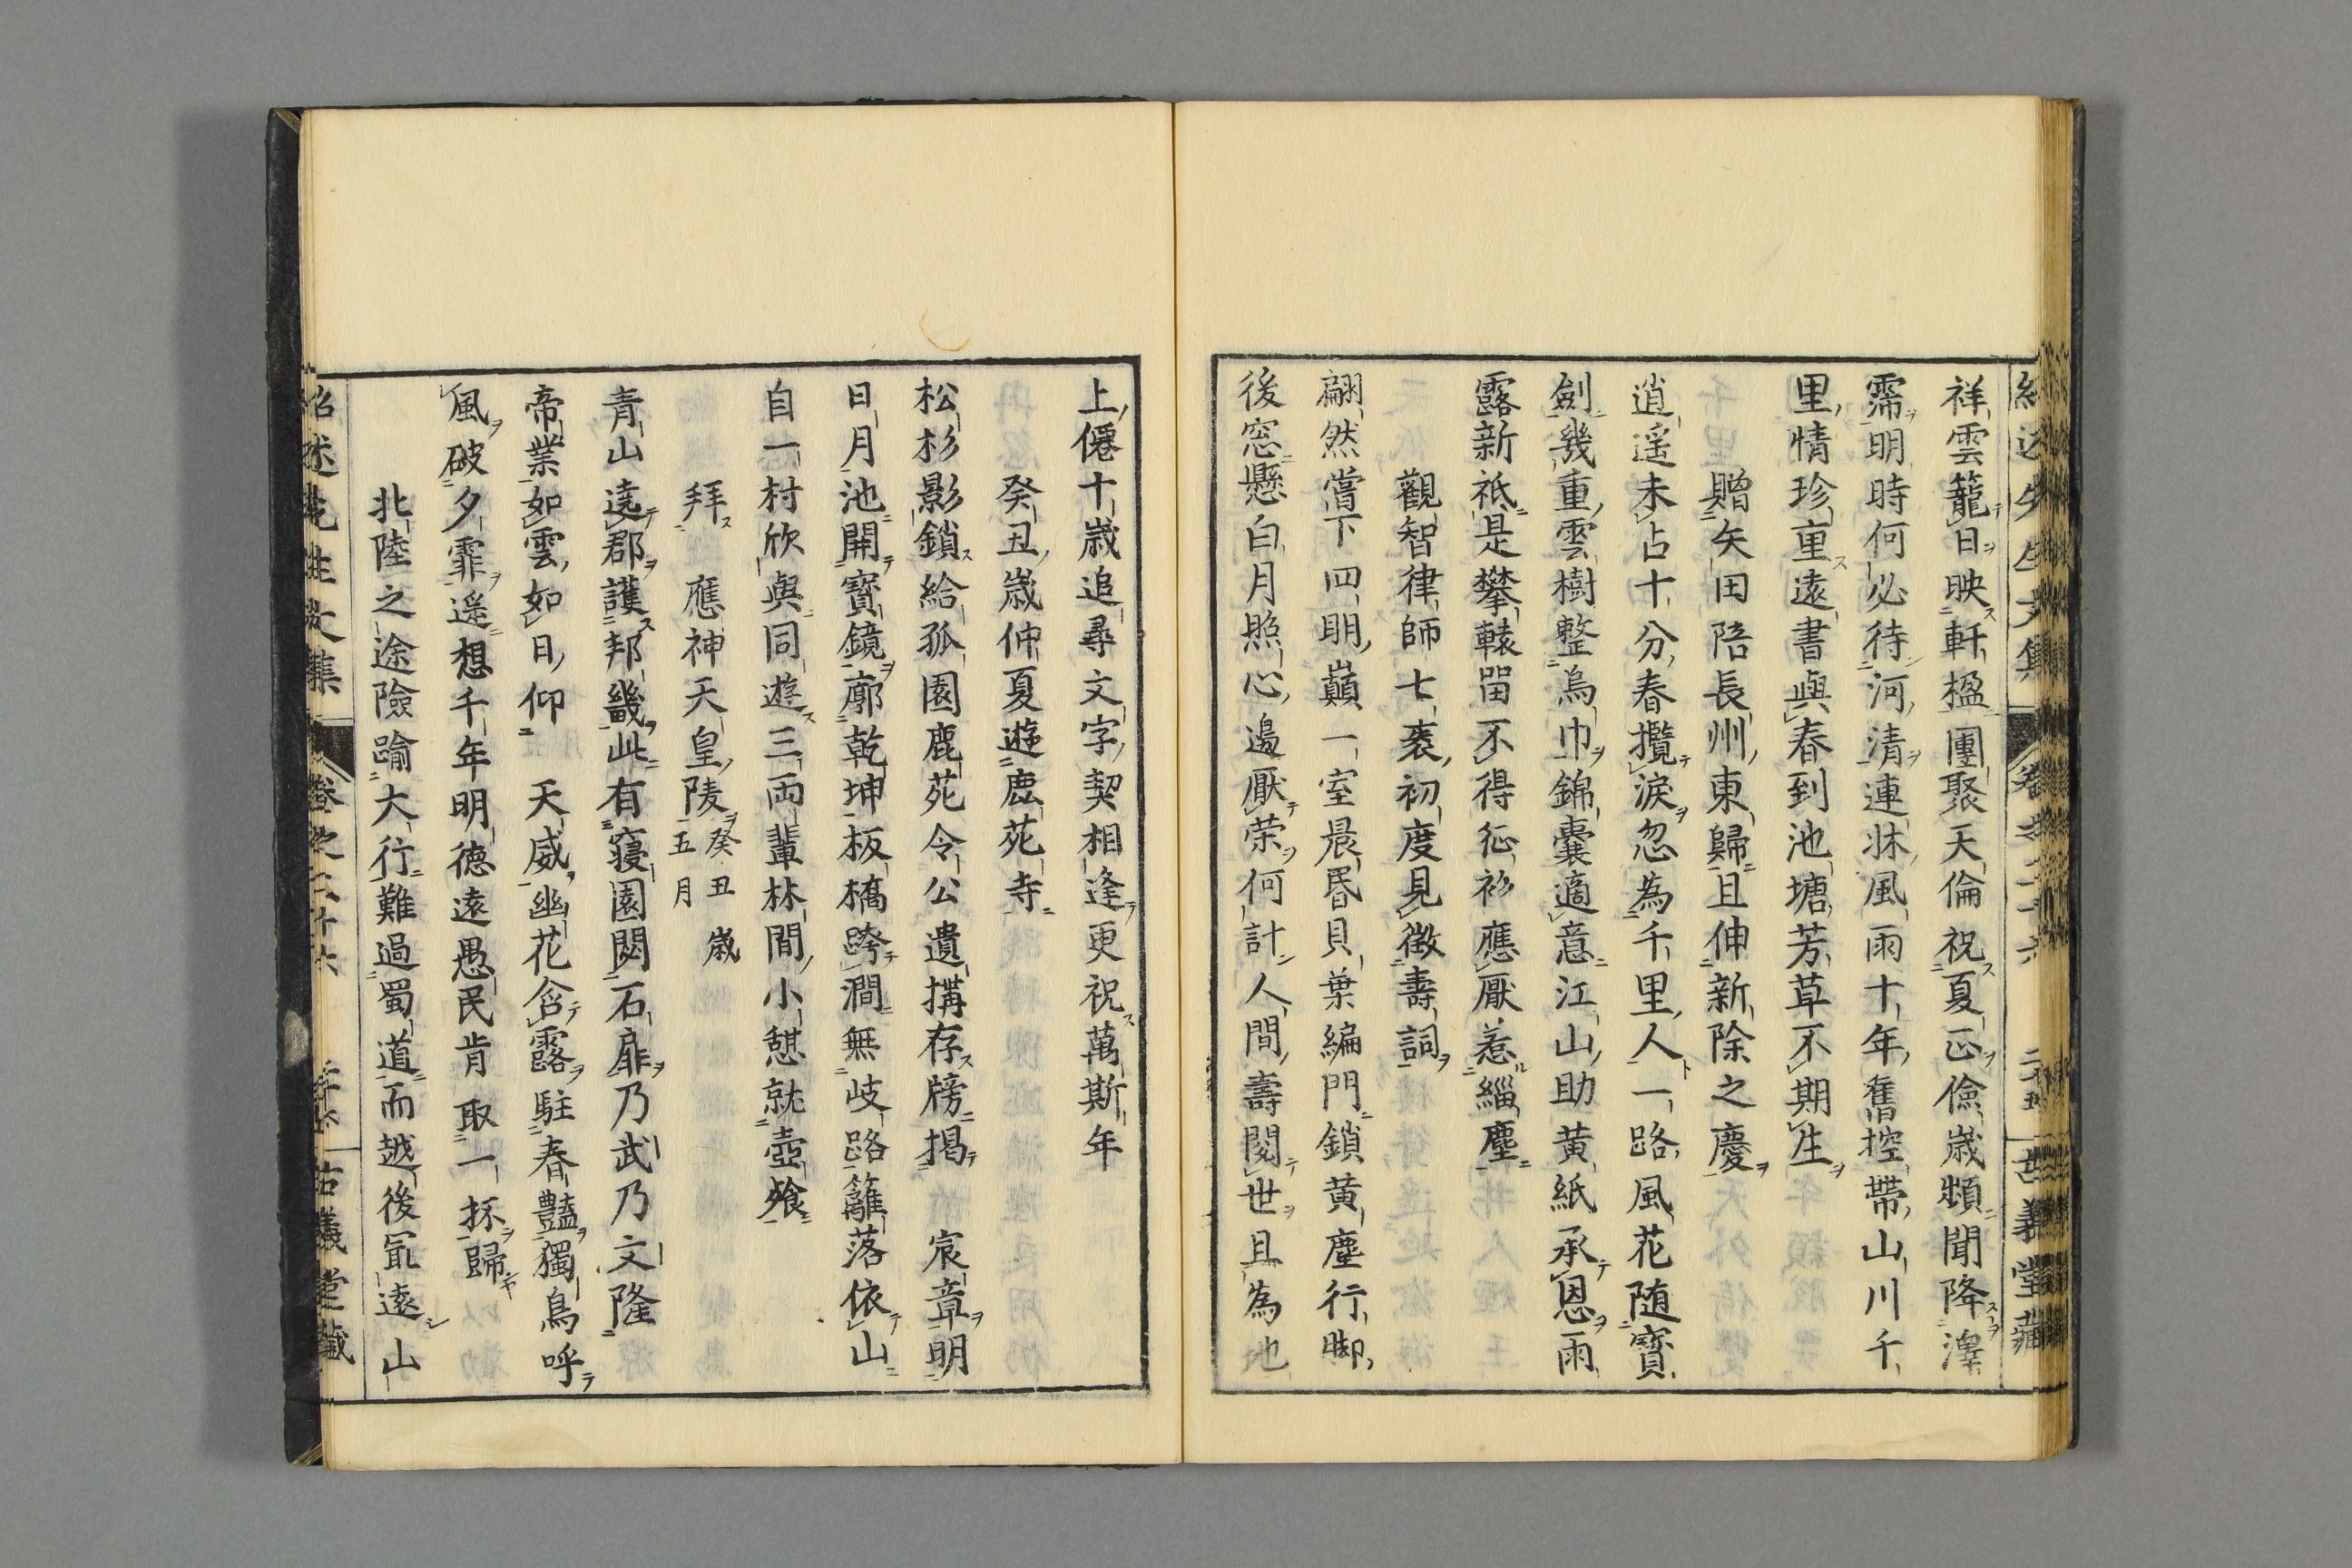 紹述先生文集 卷之二十六 二十五 古義堂藏
祥雲籠日映軒楹團聚天倫祝夏正儉歲頻聞降澤
霈明時何必待河清連牀風雨十年舊控帶山川千
里情珍重遠書與春到池塘芳草不期生
贈矢田陪長州東歸且伸新除之慶
逍遙未占十分春攬淚忽為千里人一路風花随寶
劍幾重雲樹整烏巾錦囊適意江山助黃紙承恩雨
露新祇是攀轅留不得征衫應厭惹緇塵
觀智律師七袠初度見徵壽詞
翩然嘗下四明巔一室晨昏貝葉編門鎖黃塵行脚
後窓懸白月照心邊厭荣何計人間壽閱世且為地
上僊十歲追尋文字契相逢更祝萬斯年
癸丑歲仲夏遊鹿苑寺
松杉影鎖給孤園鹿苑令公遺搆存牓揭 宸章明
日月池開寶鏡廓乾坤板橋跨澗無岐路籬落依山
自一村欣與同遊三両輩林間小憩就壺飱
拜 應神天皇陵癸丑歲五月
青山遶郡護邦畿此有寢園閟石扉乃武乃文隆
帝業如雲如日仰 天威幽花含露駐春豔獨鳥呼
風破夕霏遥想千年明德遠愚民肯取一抔歸
北陸之途險踰大行難過蜀道而越後冣遠山
紹述先生文集 卷之二十六 古義堂藏